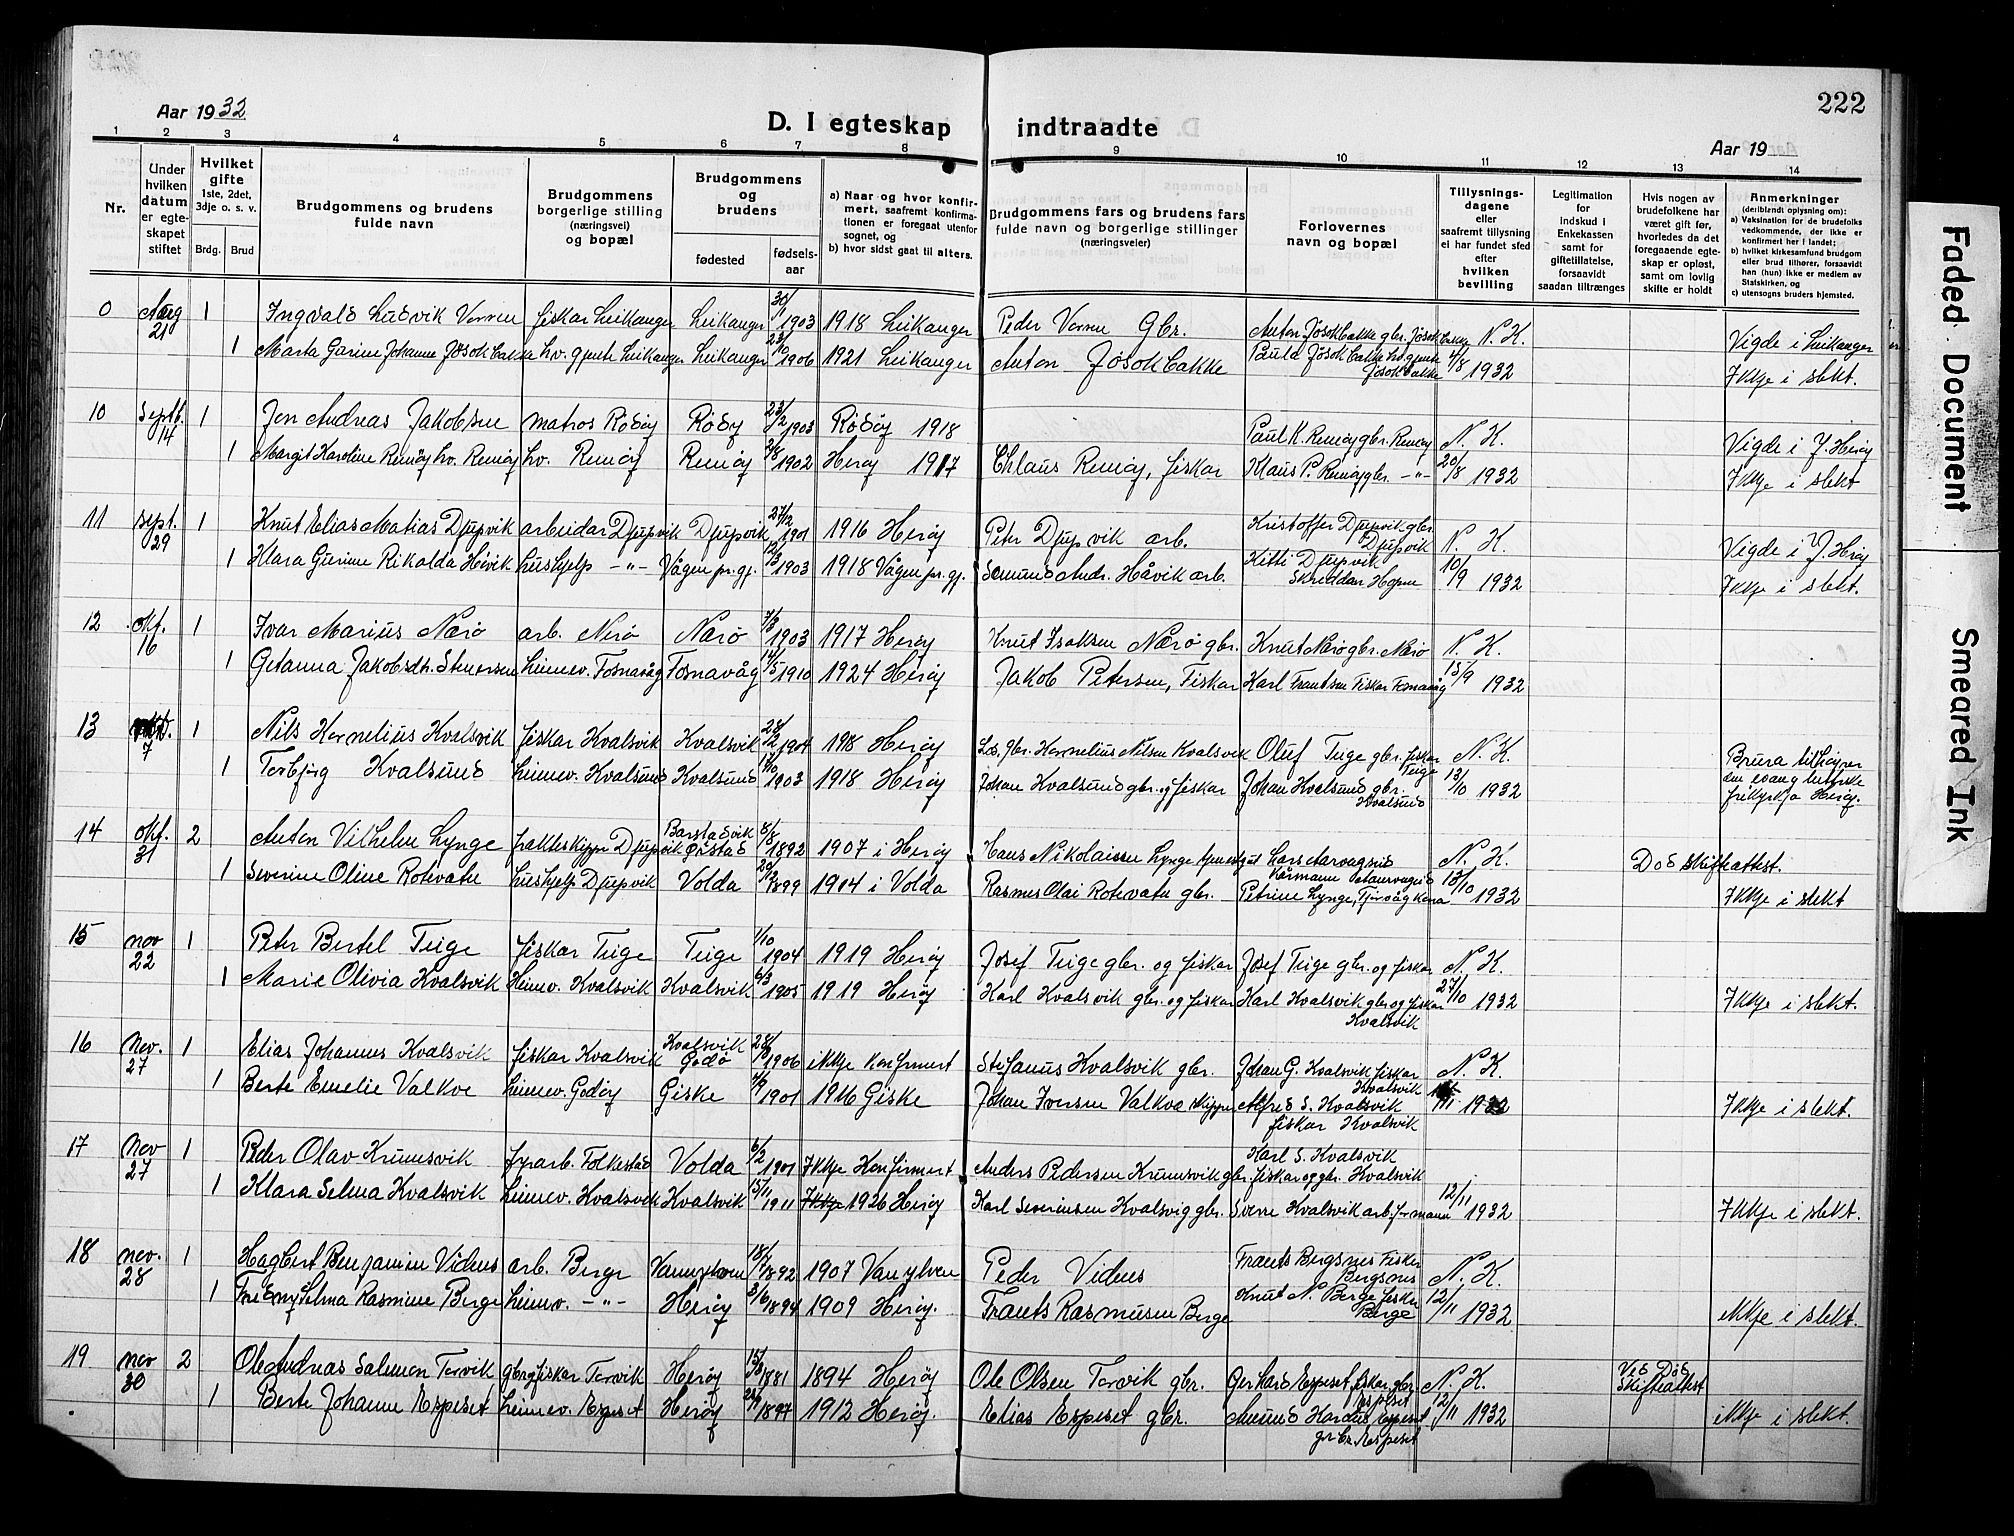 222
Aar 1932
D. I egteskap indtraadte
Aar 19
1 2 3 4 5 6 7 8 9 10 11 12 13 14
Nr.
Under hvilken datum er egteskapet stiftet
Hvilket gifte 1ste, 2det, 3dje o. s. v.
Brdg. Brud
Brudgommens og brudens fulde navn
Brudgommens borgerlige stilling (næringsvei) og bopæl
Brudgommens og brudens
fødested
fødselsaar
a) Naar og hvor konfirmert, saafremt konfirmationen er foregaat utenfor sognet, og b) hvor sidst gaat til alters.
Brudgommens fars og brudens fars fulde navn og borgerlige stillinger (næringsveier)
Forlovernes navn og bopæl
Tillysningsdagene eller saafremt tillysning ei har fundet sted efter hvilken bevilling
Legitimation for indskud i Enkekassen samt for giftetillatelse, forsaavidt saadan tiltrænges
Hvis nogen av brudefolkene har været gift før, hvorledes da det foregaaende egteskap er opløst, samt om lovlig skifte er holdt
Anmerkninger (deriblandt oplysning om): a) Vaksination for de brudefolks vedkommende, der ikke er konfirmert her i landet; b) hvilket kirkesamfund brudgom eller brud tilhører, forsaavidt han (hun) ikke er medlem av Statskirken, og c) utensogns bruders hjemsted.
0 Aug 21 1 Ingvald Ludvik Vorren fiskar Leikanger Leikanger 30/11 1903 1918 Leikanger Peder Vorren Gbr. Anton Jøsokbakke gbr. Jøsokbakke N. K. Vigde i Leikanger
1 Marta Garine Johanne Jøsokbakke hv. gjente Leikanger Leikanger 1906 1921 Leikanger Anton Jøsokbakke Paula Jøsokbakke hv. gjente Jøsokbakke 4/8 1932 Ikkje i slekt.
10 Septb. 14 1 Jon Andreas Jakobsen matros Rödöy Rödøy 23/2 1903 Rödöy 1918 Paul K. Remøy gbr. Remøy N. K. Vigde i Y. Herøy
1 Margit Karoline Remøy hv. Remøy hv. Remøy Remøy 2/8 1902 Herøy 1917 Chlaus Remøy, fiskar Klaus P. Remøy gbr. -"- 20/8 1932 Ikkje i slekt
11 Sept. 29 1 Knut Elias Matias Djupvik arbeidar Djupvik Djupvik 27/12 1901 1916 Herøy Peter Djupvik arb. Kristoffer Djupvik gbr Djupvik N. K. Vigde i Y. Herøy
1 Klara Gurine Rikalda Håvik hushjelp -"- Vågen pr. gj. 1903 1918 Vågen pr. gj. Andr. Håvik arb. Kitti Djupvik Skreddar 10/9 1932 Ikkje i slekt.
12 Okt. 16 1 Ivar Marius Nærø arb. Nerö Nærö 7/3 1903 1917 Herøy Knut Isaksen Nærö gbr. Knut Nærö gbr. Nærö N. K.
1 Getanna Jakobsdtr. heimev. Fosnavåg Fosnavåg 14/5 1910 1924 Herøy Jakob Petersen, Fiskar Karl Frantsen Fiskar Fosnavåg 15/9 1932
13 7 1 Nils Kornelius Kvalsvik fiskar Kvalsvik Kvalsvik 1904 1918 Herøy Los, gbr. Kornelius Nilsen Kvalsvik Oluf Teige gbr. fiskar Teige N. K. Brura tilhøyrer
1 Torbjørg Kvalsund heimev. Kvalsund Kvalsund 1/10 1903 1918 Herøy Johan Kvalsund gbr. og fiskar Johan Kvalsund gbr. Kvalsund 13/10 1932 den evang lutherske frikyrkja Herøy.
14 Okt. 31 2 Anton Vilhelm Lynge frakteskipper Djupvik Barstadvik Ørstad 8/8 1892 1907 i Herøy Hans Nikolaisen Lynge Lars Aarvagnes N. K. Död skifteattest.
1 Severine Oline Rotevatn hushjelp Djupvik Volda 1899 1914 i Volda Rasmus Olai Rotevatn gbr. Petrine Lynge, Tjörvåg kona 13/10 1932 Ikkje i slekt
15 nov 22 1 Peter Bertel Teige fiskar Teige Teige 1/10 1904 1919 Herøy Josef Teige gbr. og fiskar Josef Teige gbr. og fiskar N. K.
1 Marie Olivia Kvalsvik Heimev. Kvalsvik Kvalsvik 6/3 1905 1919 Herøy Karl Kvalsvik gbr. og fiskar Karl Kvalsvik gbr og fiskar Kvalsvik 27/10 1932 Ikkje i slekt.
16 Nov. 27 1 Elias Johannes Kvalsvik fiskar Kvalsvik Kvalsvik Godö 1906 ikkje konfirmert Stefanus Kvalsvik gbr. Johan G. Kvalsvik fiskar Kvalsvik N. K.
1 Berte Emelie Valkve heimev. Godøy Giske 1901 1916 Giske Johan Iversen Valkve skipper Alfred S. Kvalsvik fiskar Kvalsvik 1932 Ikkje i slekt.
17 Nov 27 1 Peder Olav Krumsvik fyrarb. Folkestad Volda 6/2 1901 Ikkje Konfirmert Anders Pedersen Krumsvik gbr. Karl S. Kvalsvik fiskar og gbr. Kvalsvik
1 Klara Selma Kvalsvik heimev. Kvalsvik Kvalsvik 15/11 1911 Ikkje 1926 Herøy Karl Severinsen Kvalsvig gbr. Sverre Kvalsvik arb. formann 12/11 1932 Ikkje i slekt.
18 nov. 28 1 Hagbert Benjamin Vidnes arb. Berge Vannylven 18/7 1892 1907 Vanylven Peder Vidnes Frants Bergsnes Fisker Bergsnes N. K.
1 Selma Rasmine Berge heimev. -"- Herøy 3/6 1894 1909 Herøy. Frants Rasmusen Berge Knut N. Berge fisker Berge 12/11 1932 ikkje i slekt.
19 nov 30 2 Ole Andreas Salomon Torvik gbr og fiskar Torvik Herøy 1881 1894 Herøy Ole Olsen Torvik gbr. Gerhard Espeset fiskar gbr. Espeset N. K. Ved Död Skifteattest
1 Berte Johanne Espeset heimev. Espeset Herøy 1897 1912 Herøy. Elias Espeset gbr. Amund Espeset gr. br. Espeset 12/11 1932 ikkje i slekt.
Faded Document
Smeared Ink